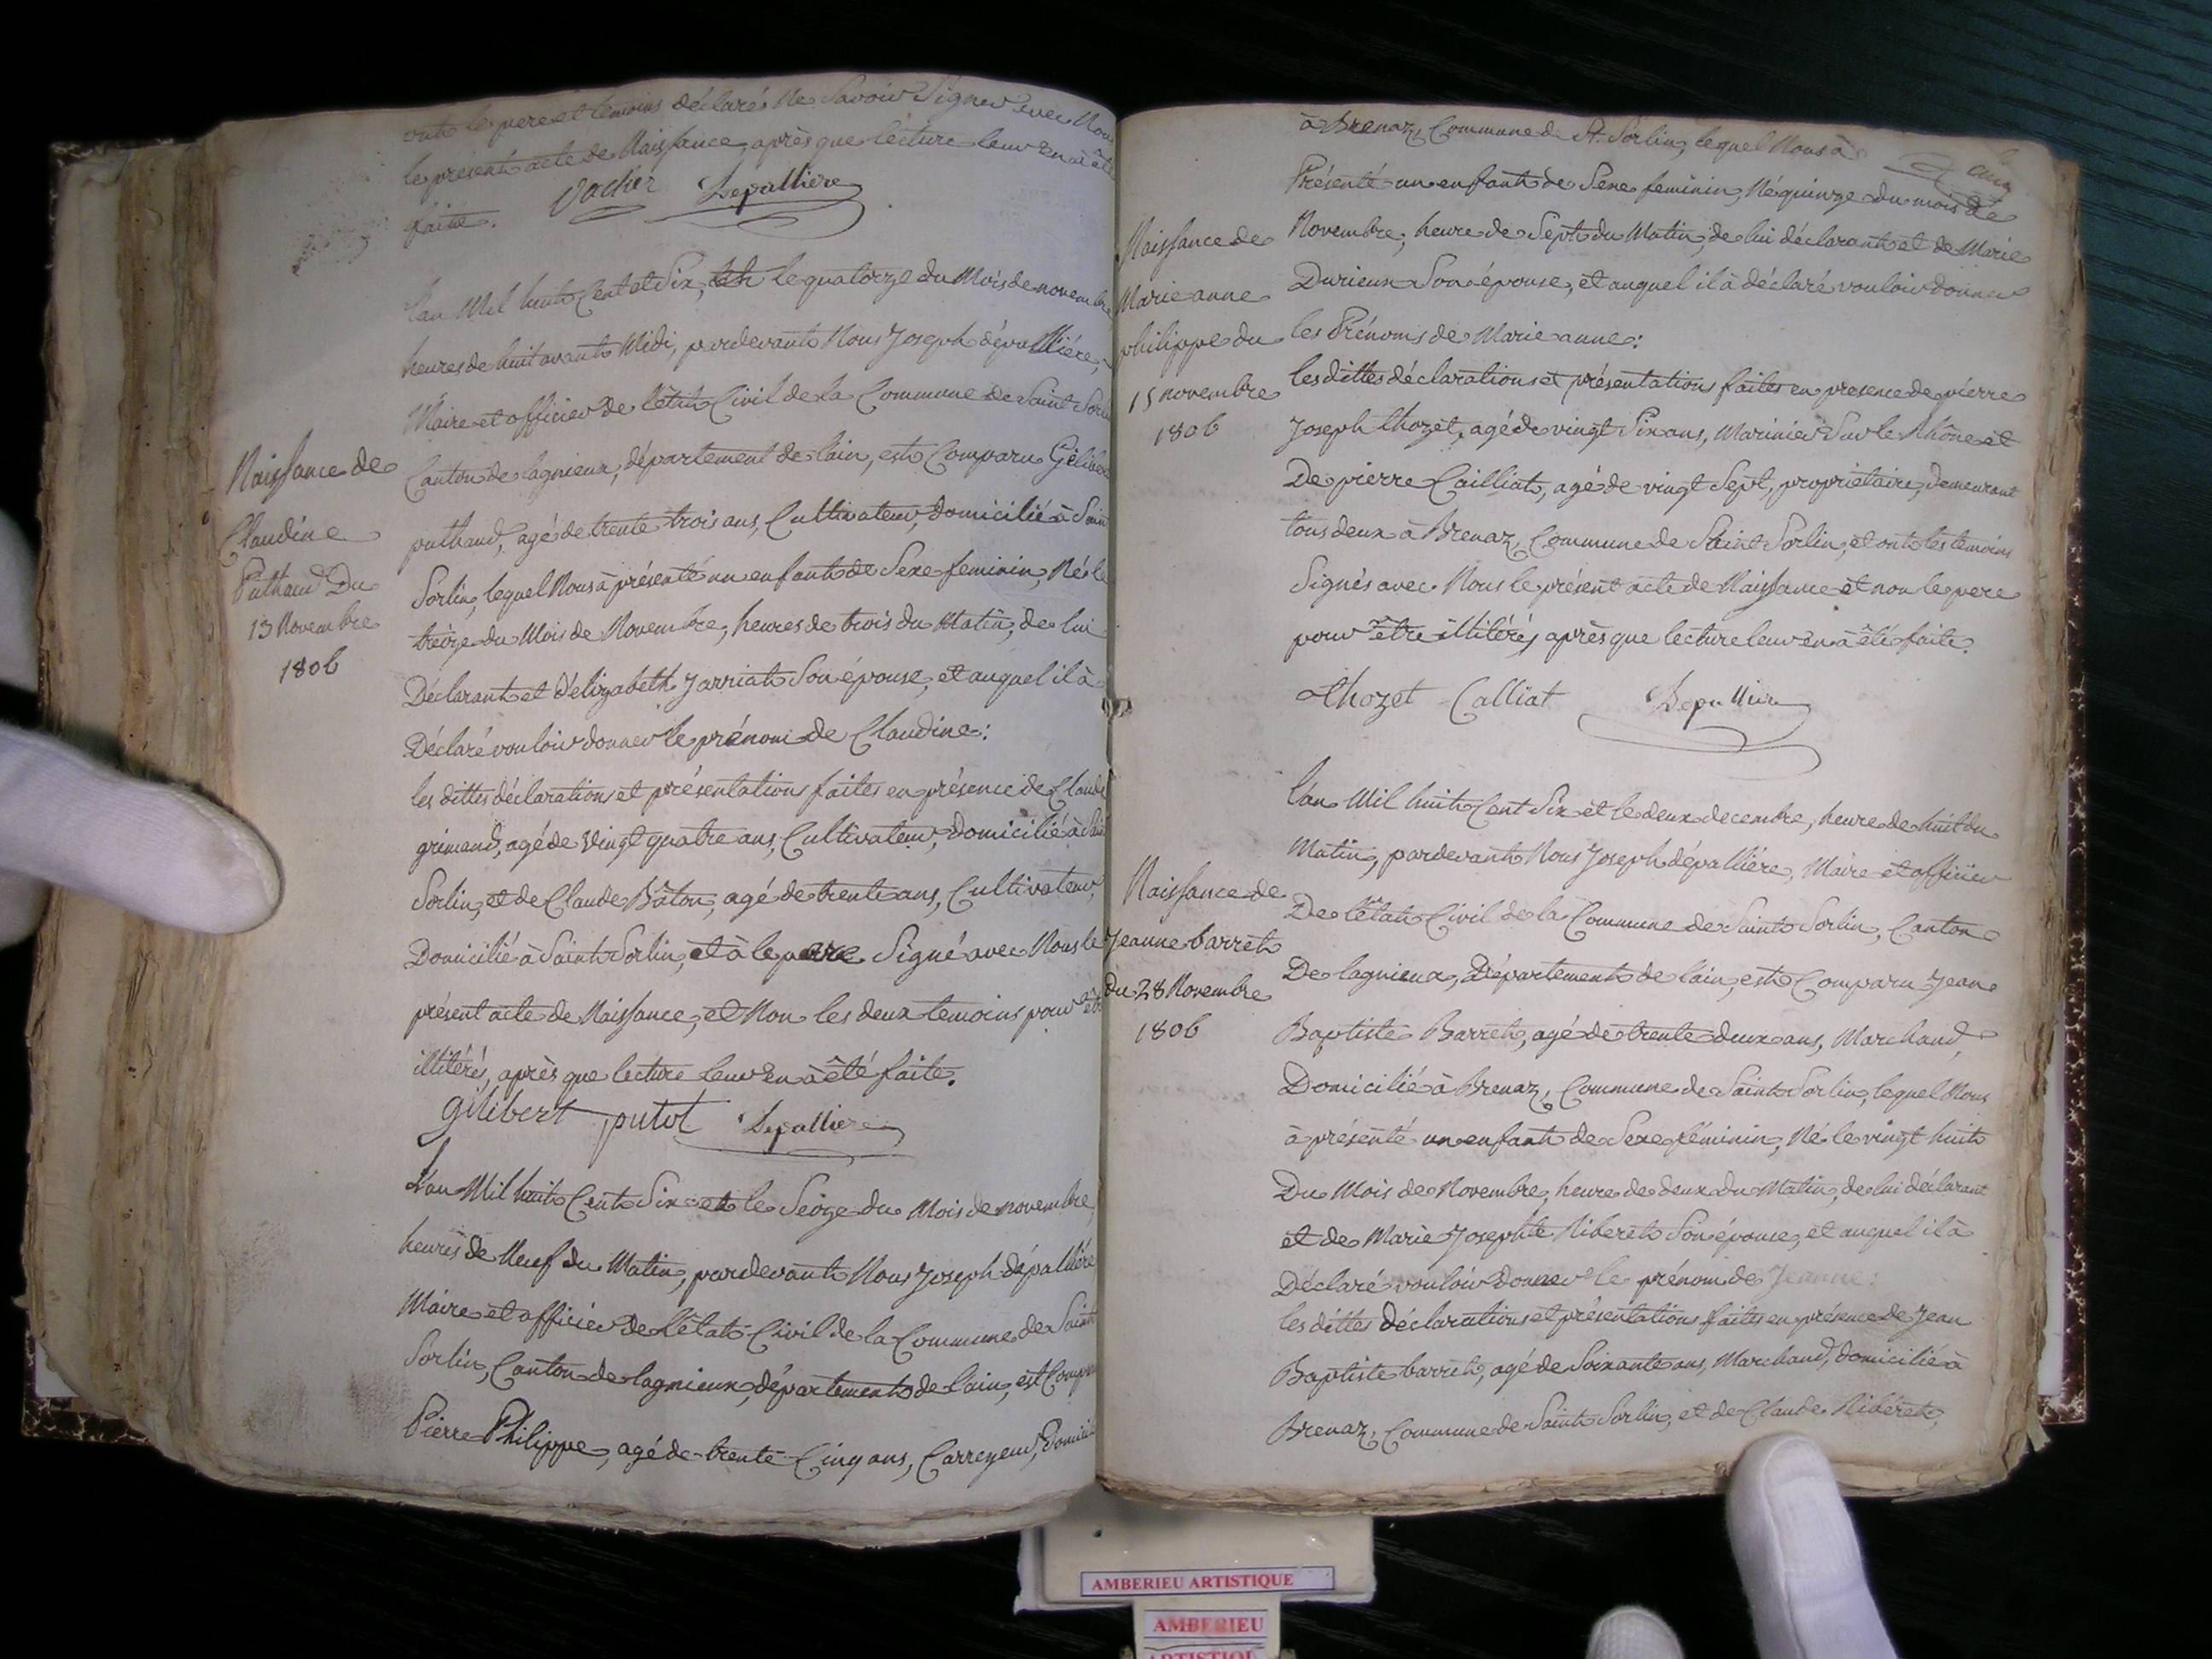 onts le pere et temoins déclarés Ne Savoir Signer avec Nous
le présent acte de Naissance, après que lecture leur en a été
faitte. Vacher Depallière
L'an Mil huit Cent et Six, le quatorze du Mois de novembre
heures de huit avant Midi, pardevant Nous Joseph dépallière,
Maire et officier de l'état Civil de la Commune de Saint Sorlin
Canton de lagnieux, département de lain, est Comparu Gélibert
puthaud, agé de trente trois ans, Cultivateur, domicilié à Saint
Sorlin, lequel Nous à présenté un enfant de Sexe feminin, Né le
treize du Mois de Novembre, heures de trois du Matin, de lui
Déclarant et d'elizabeth Jarriat Son épouse, et auquel il à
Déclaré vouloir donner le prénom de Claudine:
les dittes déclarations et présentations faites en présence de Claude
grimand, agé de vingt quatre ans, Cultivateur, domicilié à Saint
Sorlin, et de Claude Bâton, agé de trente ans, Cultivateur,
Domicilié à Saint Sorlin, et à le pere Signé avec Nous le
présent acte de Naissance, et Non les deux temoins pour être
illitérés, après que lecture leur en à été faite.
gilibert putot Depallière
L'an Mil huit Cent Six et le Seize du Mois de novembre,
heures de Neuf du Matin, pardevant Nous Joseph dépallière
Maire et officier de l'état Civil de la Commune de Saint
Sorlin, Canton de lagnieux, département de lain, est Comparu
Pierre Philippe, agé de trente Cinq ans, Carreyeur, Domicilié
Naissance de
Claudine
Puthaud Du
13 Novembre
1806
à Brenaz, Commune de St. Sorlin, lequel Nous à
Présenté un enfant de Sexe feminin, Né quinze du mois de
Novembre, heure de Sept du Matin, de lui déclarant et de Marie
Durieux Son épouse, et auquel il à déclaré vouloir donner
les Prénoms de Marie anne:
les dittes déclarations et présentations faites en presence de pierre
Joseph thozet, agé de vingt Six ans, Marinier Sur le Rhône et
De pierre Cailliat, agé de vingt Sept, propriétaire, Demeurant
tous deux à Brenaz, Commune de Saint Sorlin, et ont les temoins
Signés avec Nous le présent acte de Naissance et non le pere
pour être illitérés après que lecture leur en à été faite.
thozet Calliat Depallière
L'an Mil huit Cent Six et le deux decembre, heure de huit du
Matin, pardevant Nous Joseph dépallière, Maire et officier
De l'état Civil de la Commune de Saint Sorlin, Canton
De lagnieux, Département de lain, est Comparu Jean
Baptiste Barret, agé de trente deux ans, Marchand,
Domicilié à Brenaz, Commune de Saint Sorlin, lequel Nous
à présenté un enfant de Sexe féminin, Né le vingt huit
Du Mois de Novembre, heure de deux du Matin, de lui déclarant
et de Marie Josephte Niberet Son épouse, et auquel il à
Déclaré vouloir donner le prénom de Jeanne:
les dittes déclarations et présentations faites en présence de Jean
Baptiste barret, agé de Soixante ans, Marchand, domicilié à
Brenaz, Commune de Saint Sorlin, et de Claude Niberet,
Naissance de
Marie anne
philippe du
15 novembre
1806
Naissance de
Jeanne barret
du 28 Novembre
1806
AMBERIEU ARTISTIQUE
AMBERIEU
ARTISTIQU